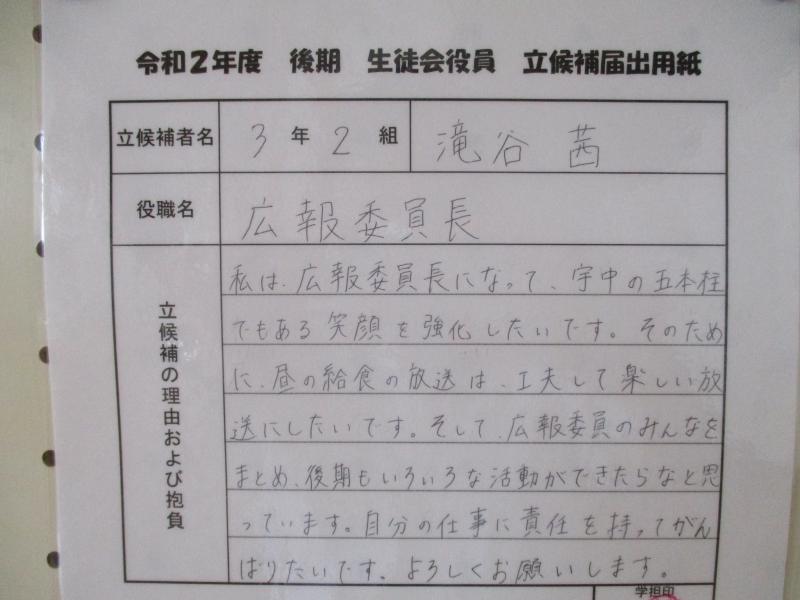 令和2年度 後期 生徒会役員 立候補届出用紙
立候補者名 3年2組 滝谷 茜
役職名 広報委員長
立候補の理由および抱負
私は、広報委員長になって、宇中の五本柱
でもある笑顔を強化したいです。そのため
に、昼の給食の放送は、工夫して楽しい放
送にしたいです。そして、広報委員のみんなを
まとめ、後期もいろいろな活動ができたらなと思
っています。自分の仕事に責任を持ってがん
ばりたいです。よろしくお願いします。
学担印